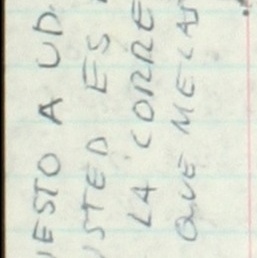 UESTO A UD.
USTED ES
LA CORRE
QUE ME LA